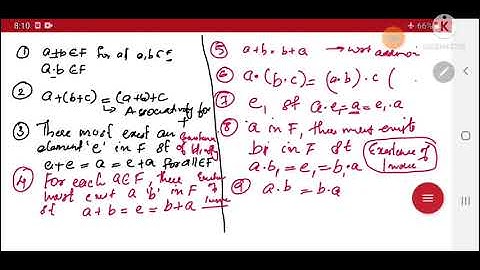 8:10
66%
① a+b∈F for al a,b∈F
a.b∈F
② a+(b+c)=(a+b)+c
↳ Associativity for +
③ There most exist an
element 'e' in F st of
e+e = a = e+a for all ∈F
④ For each a∈F, there
most exist a 'b' in F
st a+b = e = b+a
⑤ a+b = b+a →
⑥ a.(b.c) = (a.b).c (
⑦ e₁ st a.e₁=a=e₁.a
⑧ 'a in F, there most exists
b₁ in F st
a.b₁=e₁=b₁.a
Existence of
⑨ a.b = b.a